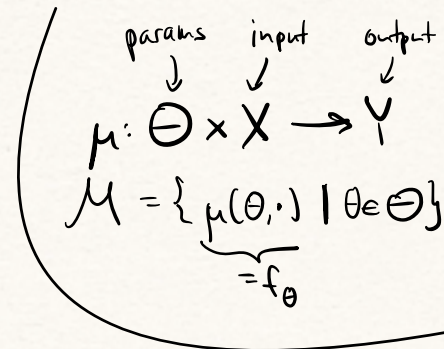 params input output
μ: Θ × X → Y
M = { μ(θ,·) | θ∈Θ}
=f_θ